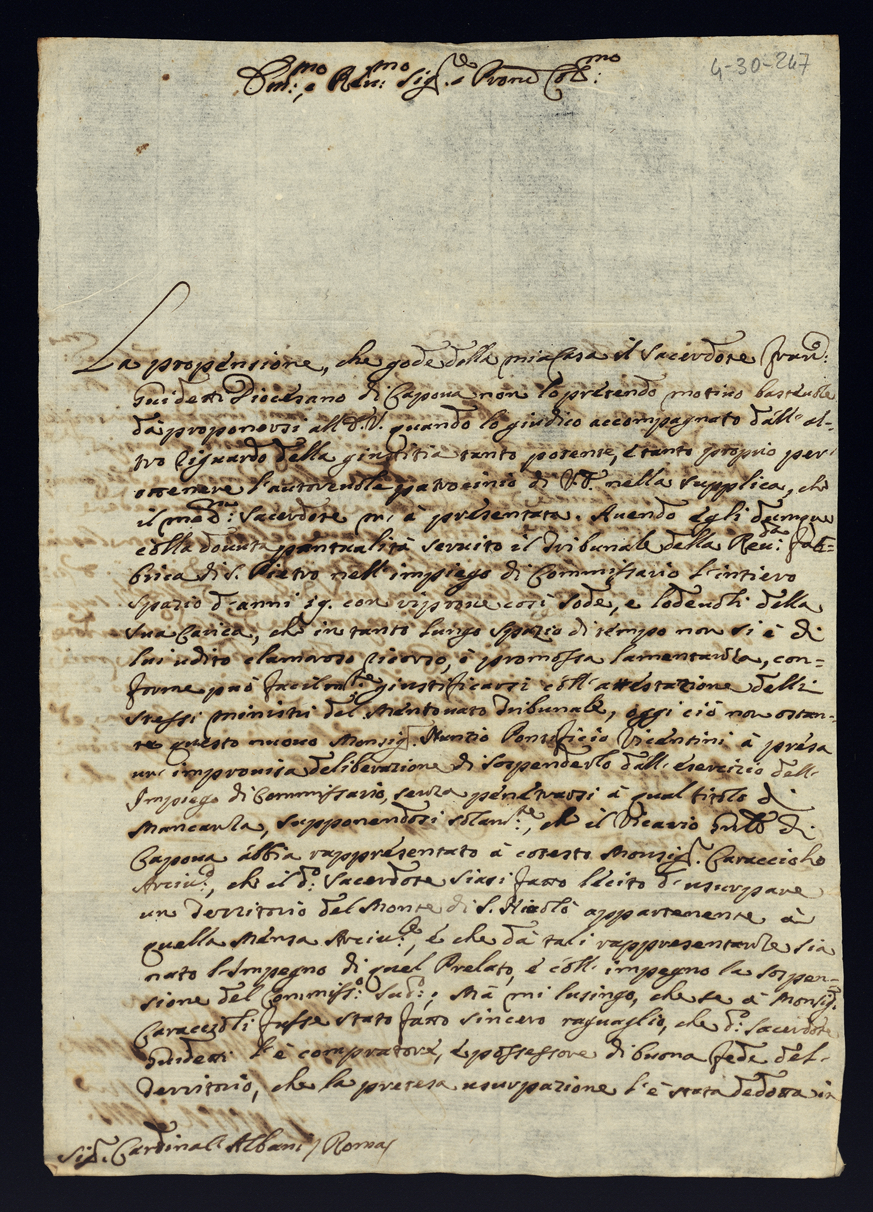 4-30-247
Em:mo, e Reu:mo Sig.re e Prone Col:mo
La propensione, che gode della mia Casa il Sacerdote Fran.co:
Guidetti Diocesano di Capoua non lo pretendo motiuo basteuole
dà proponersi all'E.V. quando lo giudico accompagnato dall'al-
tro riguardo della giustitia tanto potente, è tanto proprio per
ottenere l'autoreuole patrocinio di V.E. nella supplica, che
il med:mo Sacerdote mi à presentata. Auendo egli dunque
colla douuta puntualità seruito il Tribunale della Reu:da Fab-
brica di S. Pietro nell'impiego di Commissario l'intiero
spazio d'anni 19. con riproue così sode, e lodeuoli della
sua Carica, che in tanto lungo spazio di tempo non si è di
lui udito clamoroso ricorso, ò promossa lamentanza, con-
forme può facilm.te giustificarsi coll'attestazione delli
stessi ministri del mentouato Tribunale, oggi ciò non ostan-
te questo nuouo Monsig.r Nunzio Pontificio Vicentini à presa
un'improuisa deliberazione di sospenderlo dall'esercizio dell'
Impiego di Commissario, senza penetrarsi à qual titolo di
mancanza, supponendosi solam.te, che il Vicario di
Capoua abbia rappresentato à cotesto Monsig.r Caracciolo
Arciu.o, che il d.o Sacerdote siasi fatto lecito d'usurpare
un Territorio del Monte di S. Nicolò appartenente à
quella Mensa Arciu.le, è che dà tali rappresentanze sia
nato l'Impegno di quel Prelato, è coll'impegno la sospen-
sione del Commiss:o sud.o; Mà mi lusingo, che se à Monsig.r
Caraccioli fusse stato fatto sincero raguaglio, che d.o Sacerdote
Guidetti l'è compratore, è possessore di buona fede del
Territorio, che la pretesa usurpazione l'è stata dedotta in
Sig.r Cardinale Albani / Roma /